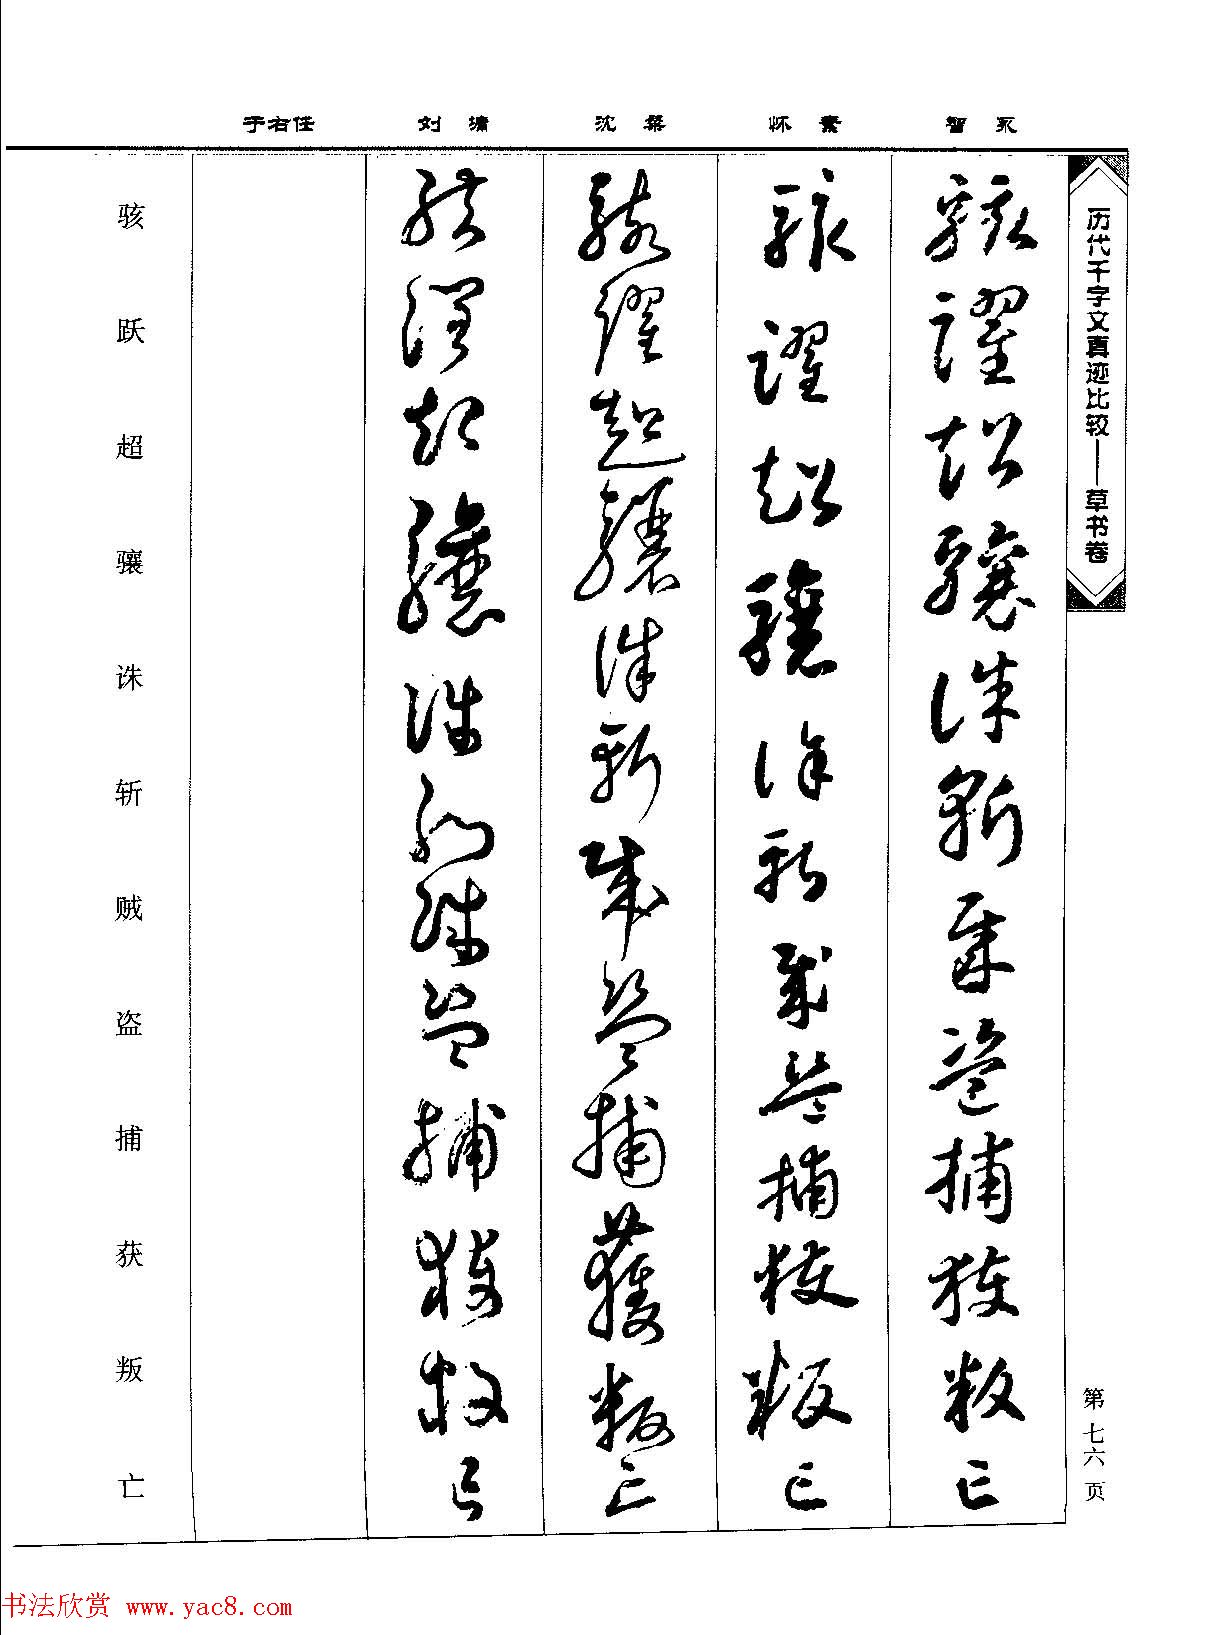 智永
怀素
沈粲
刘墉
于右任
历代千字文真迹比较——草书卷
第七六页
骇躍超骧诛斩贼盗捕获叛亡
骇躍超骧诛斩贼盗捕获叛亡
骇躍超骧诛斩贼盗捕獲叛亡
骇躍超骧诛斩贼盗捕获叛亡
骇跃超骧诛斩贼盗捕获叛亡
书法欣赏 www.yac8.com